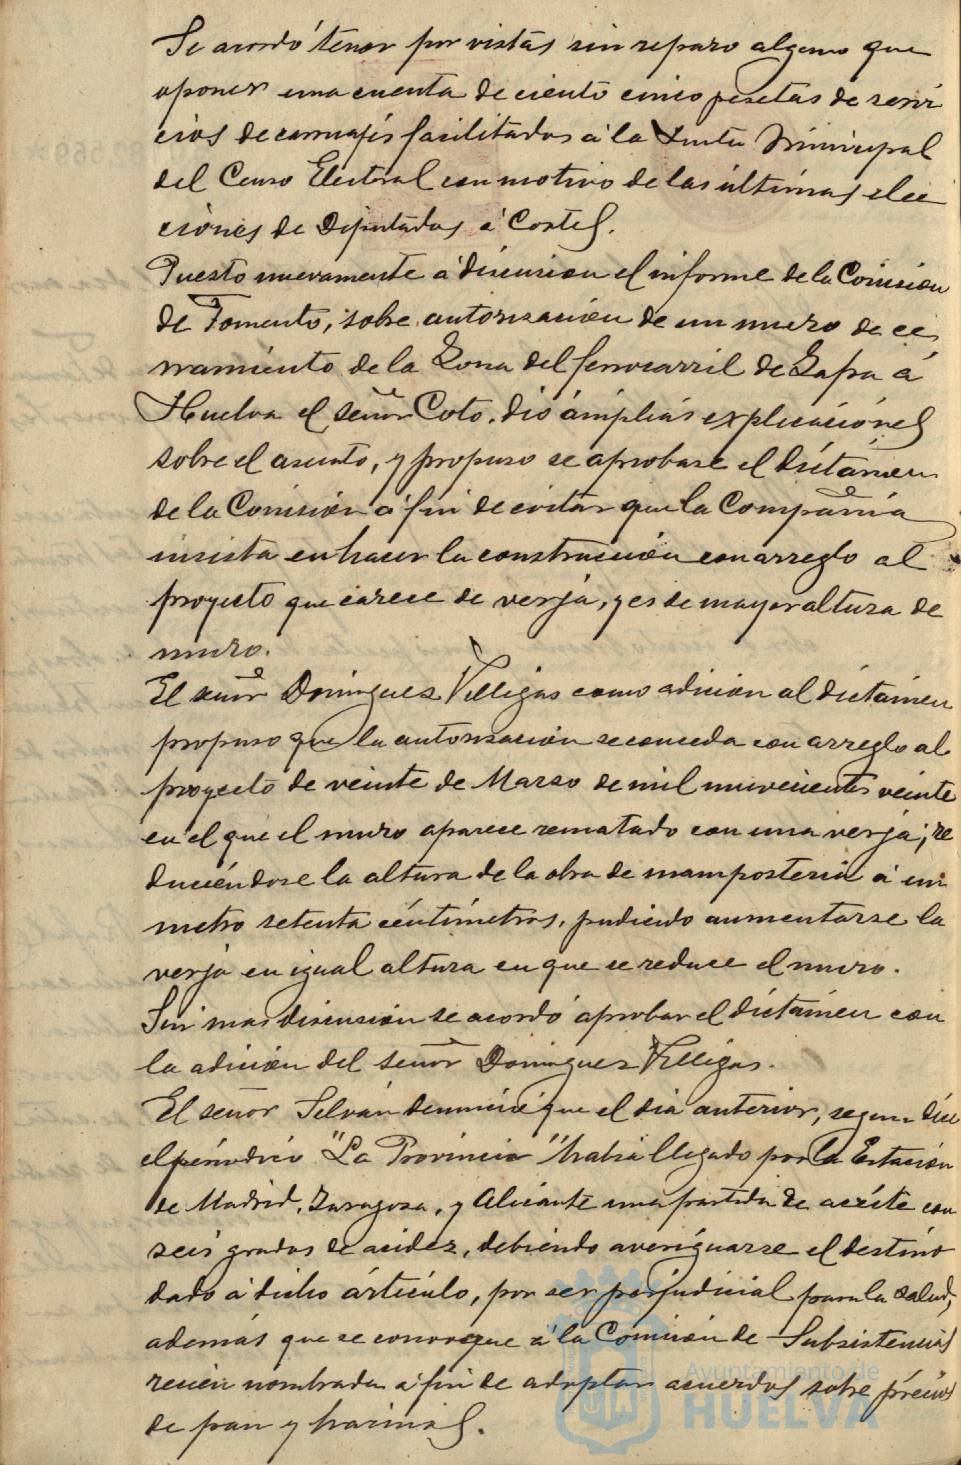 Se acordó tener por vistas sin reparo alguno que
oponer una cuenta de ciento cinco pesetas de servi
cios de carruajes facilitados á la Junta Municipal
del Censo Electoral con motivo de las últimas elec
ciones de Diputados á Cortes.
Puesto nuevamente á discusion el informe de la Comision
de Fomento, sobre autorización de un muro de ce
rramiento de la Zona del ferrocarril de Zafra á
Huelva el señor Coto, dió ámplias explicaciónes
sobre el asunto, y propuso se aprobase el dictámen
de la Comisión á fin de evitar que la Compañia
insista en hacer la construcción con arreglo al
proyecto que carece de verja, y es de mayor altura de
muro.
El señor Dominguez Villegas como adición al dictámen
propuso que la autorización se conceda con arreglo al
proyecto de veinte de Marzo de mil novecientos veinte
en el que el muro aparece rematado con una verja; re
duciéndose la altura de la obra de mamposteria á un
metro setenta céntímetros, pudiendo aumentarse la
verja en igual altura en que se reduce el muro.
Sin mas discusión se acordó aprobar el díctámen con
la adición del señor Dominguez Villegas.
El señor Selván denunció que el dia anterior, segun dice
el périodico "La Provincia" habia llegado por la Estación
de Madrid, Zaragoza, y Alicante una partida de aceite con
seis grados de acidez, debiendo averiguarse el destino
dado á dicho árticulo, por ser perjudicial para la salud,
además que se convoque á la Comisión de Subsistencias
recien nombrada á fin de adoptar acuerdos sobre précios
de pan y harinas.
Ayuntamiento de
HUELVA